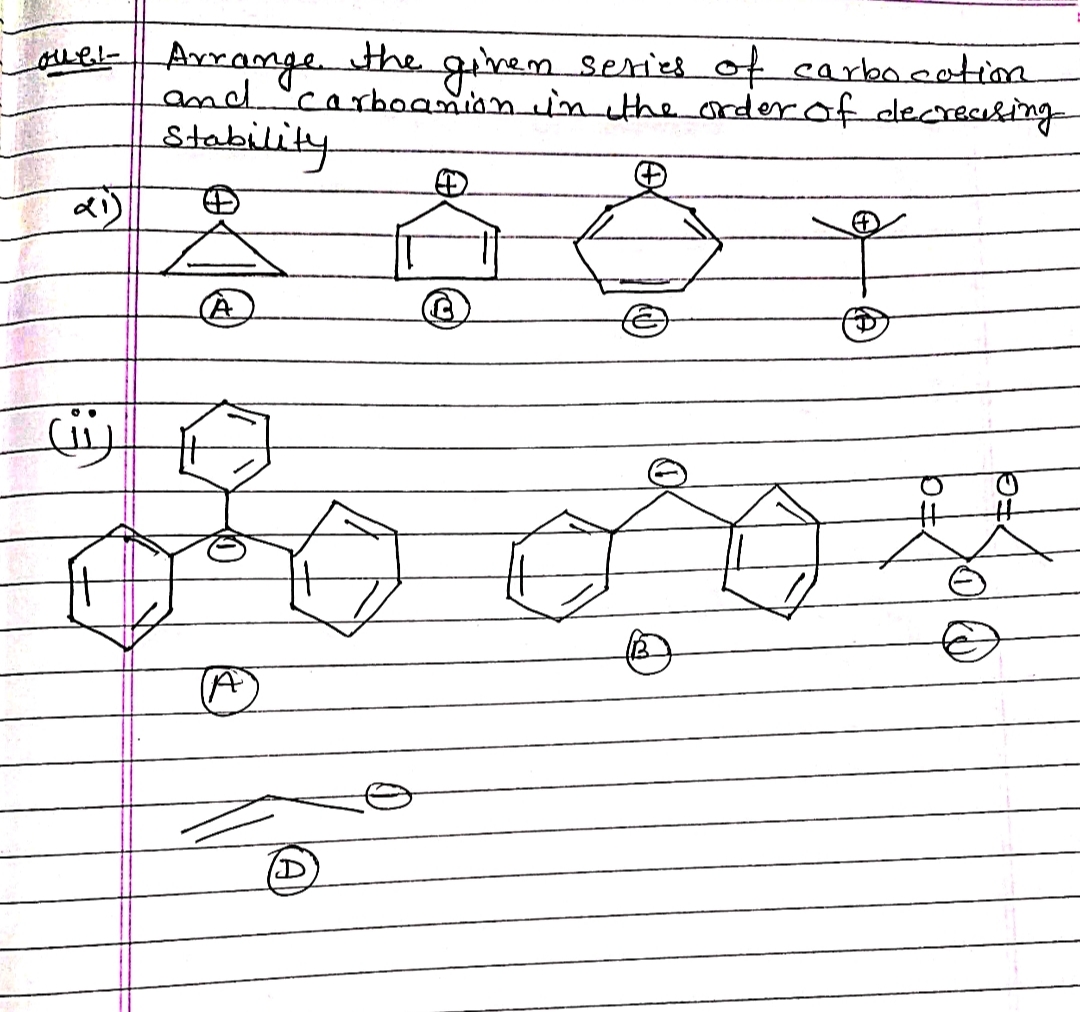 Que:- Arrange the given series of carbocation
and carboanion in the order of decreasing
stability
(i) ⊕ ⊕ ⊕ ⊕
A B C D
(ii)
⊖ ⊖ O O
⊖
A B C
⊖
D